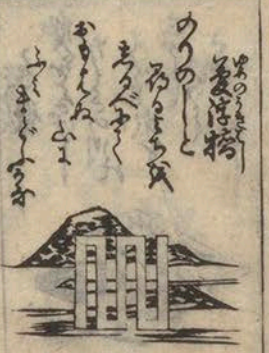 ゆめのうきはし
夢浮橋
のりのしと
尋るみちを
しるべにて
おもはぬ山に
ふみ
まどふかな